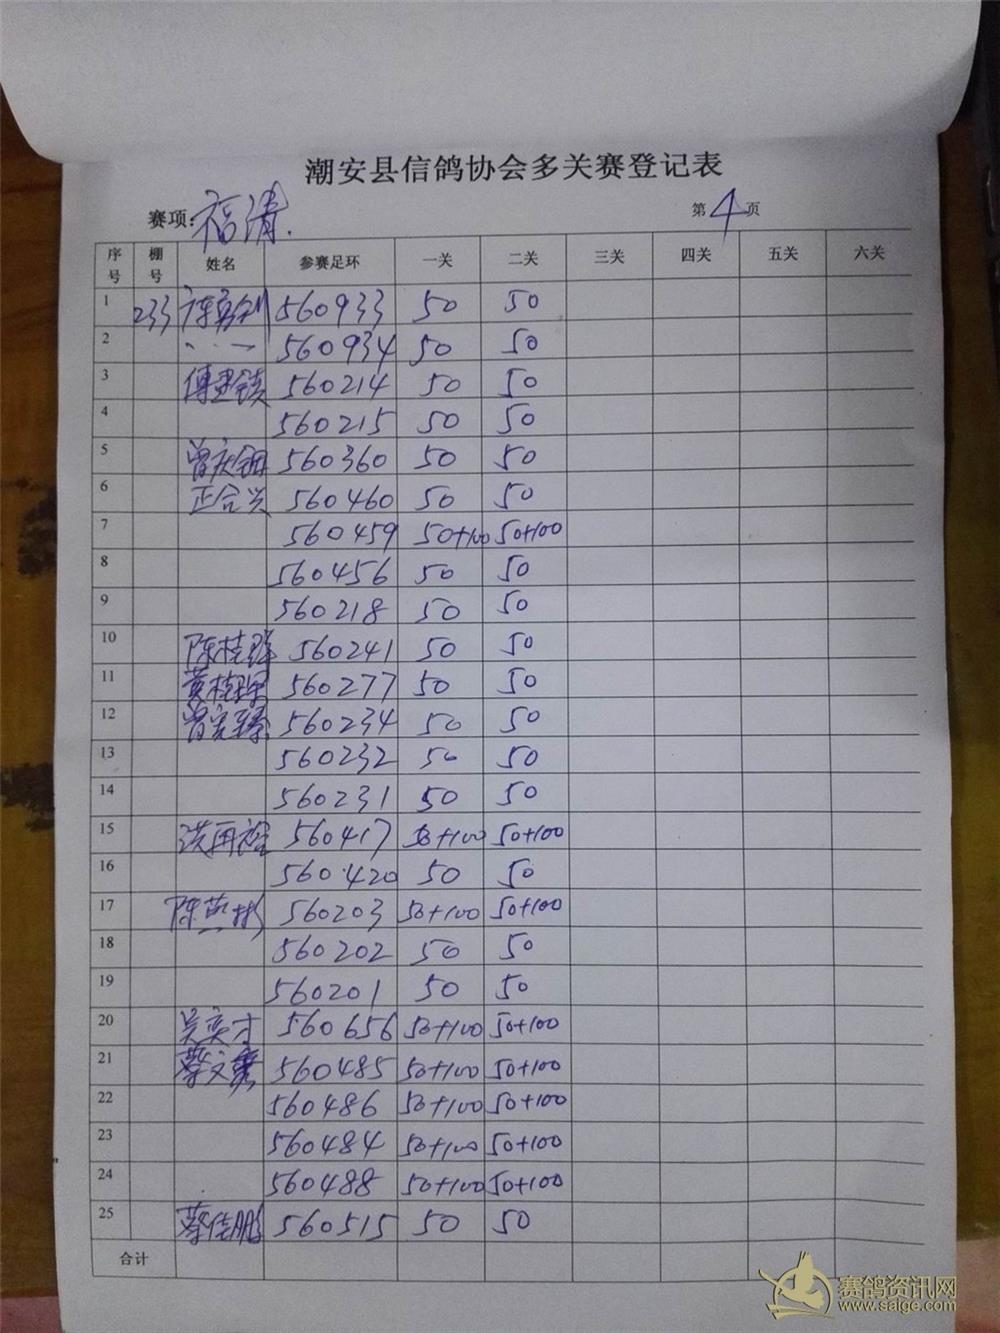 潮安县信鸽协会多关赛登记表
赛项:福清. 第4页
序号 棚号 姓名 参赛足环 一关 二关 三关 四关 五关 六关
1 233 560933 50 50
2 560934 50 50
3 560214 50 50
4 560215 50 50
5 曾庆钿 560360 50 50
6 正合兴 560460 50 50
7 560459 50+100 50+100
8 560456 50 50
9 560218 50 50
10 陈桂 560241 50 50
11 黄 560277 50 50
12 曾 560234 50 50
13 560232 50 50
14 560231 50 50
15 洪再 560417 50+100 50+100
16 560420 50 50
17 陈燕彬 560203 50+100 50+100
18 560202 50 50
19 560201 50 50
20 吴奕才 560656 50+100 50+100
21 蔡文 560485 50+100 50+100
22 560486 50+100 50+100
23 560484 50+100 50+100
24 560488 50+100 50+100
25 蔡佳鹏 560515 50 50
合计
赛鸽资讯网
www.saige.com